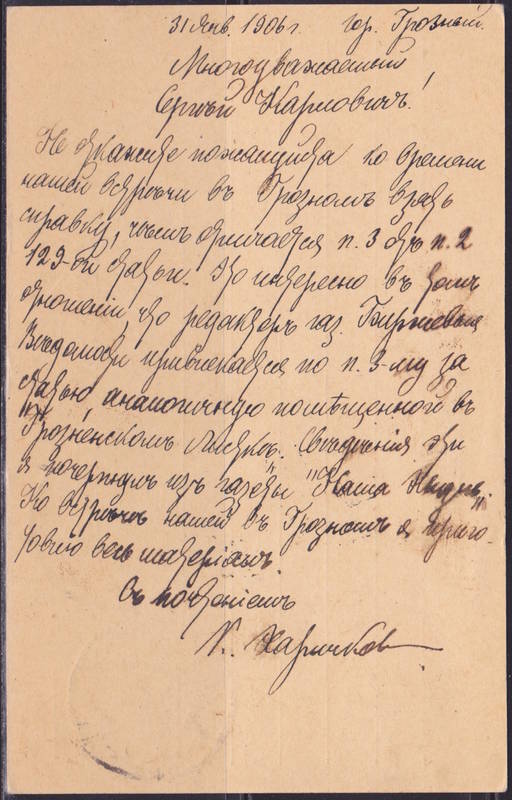 31 Янв. 1906 г. Гор. Грозный.
Многоуважаемый
Сергѣй Карловичъ!
Не откажите пожалуйста ко времени
нашей встрѣчи въ Грозномъ взять
справку, чѣмъ отличается п. 3 отъ п. 2
129-ой статьи. Это интересно въ томъ
отношеніи, что редакторъ газ. Биржевыя
Вѣдомости привлекается по п. 3-му за
статью, аналогичную помѣщенной въ
"Грозненскомъ Листкѣ. Свѣдѣнія эти
я почерпнулъ изъ газеты "Наша Жизнь"
Ко встрѣчѣ нашей въ Грозномъ я приго-
товлю весь матеріалъ.
Съ почтеніемъ
К. Харичков